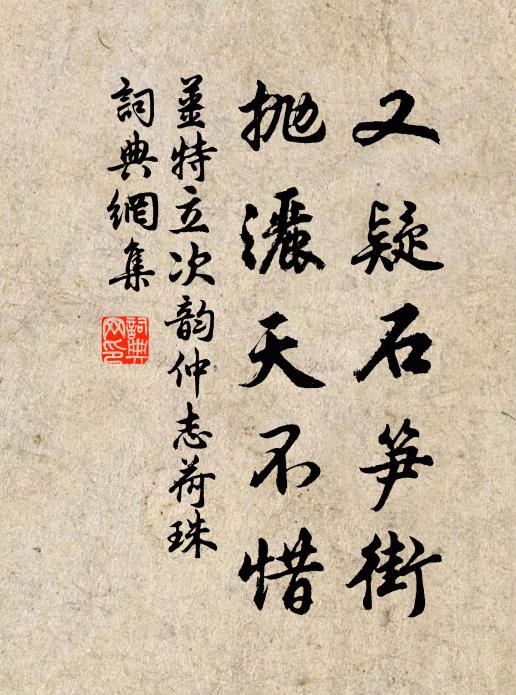 又疑石笋街
抛灑天不惜
薑特立次韵仲志荷珠
詞典網集
詞典
网印